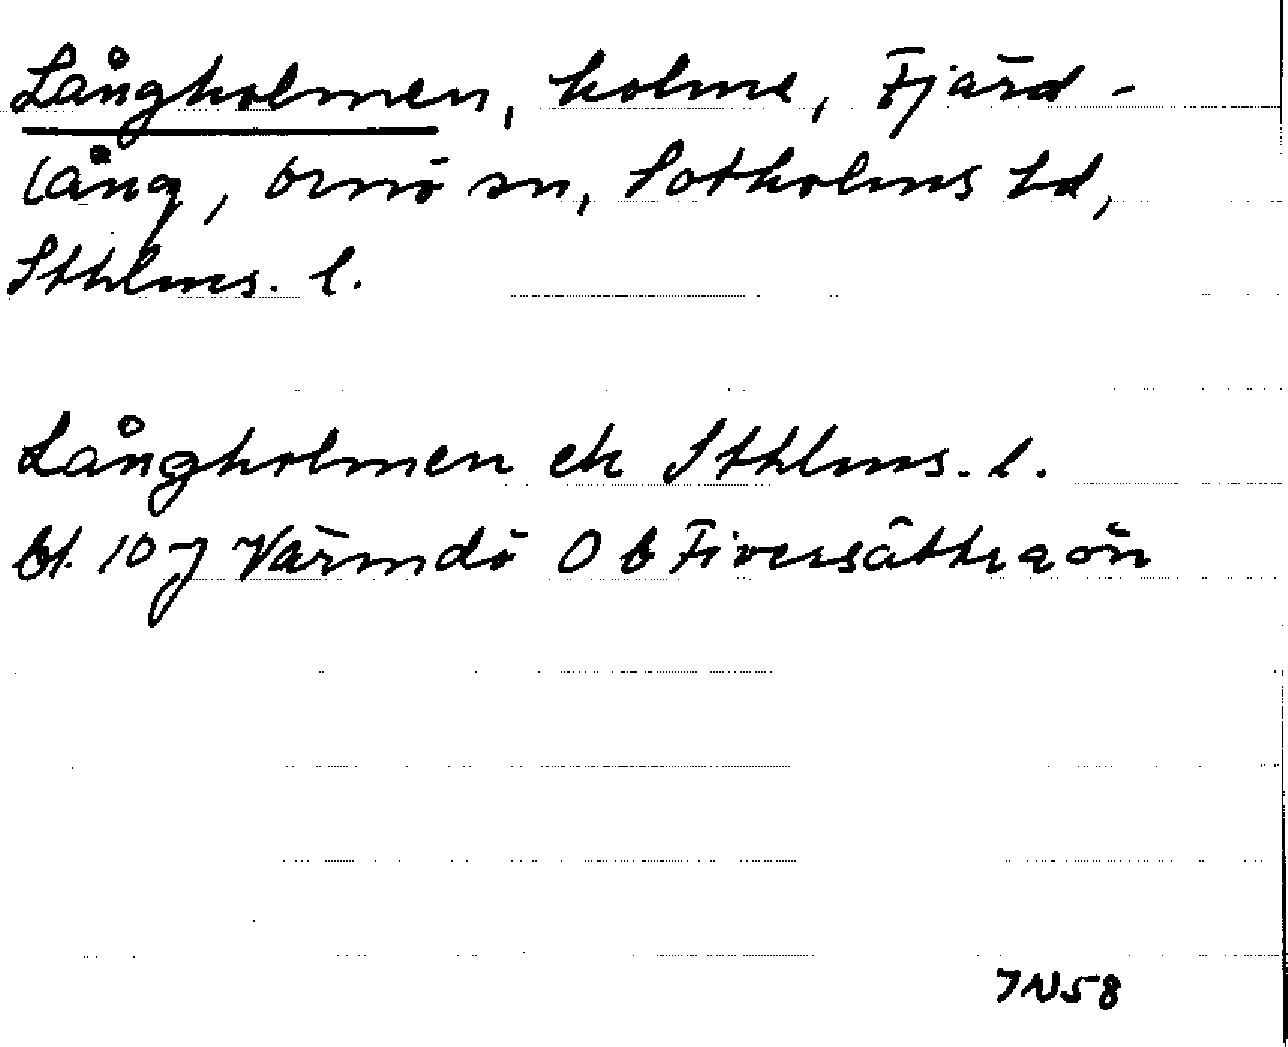 Långholmen, holme, Fjärd-
lång, Ornö sn, Sotholms hd,
Sthlms. l.
Långholmen ek Sthlms. l.
bl. 10 J Värmdö O b Fiversättraön
JN58